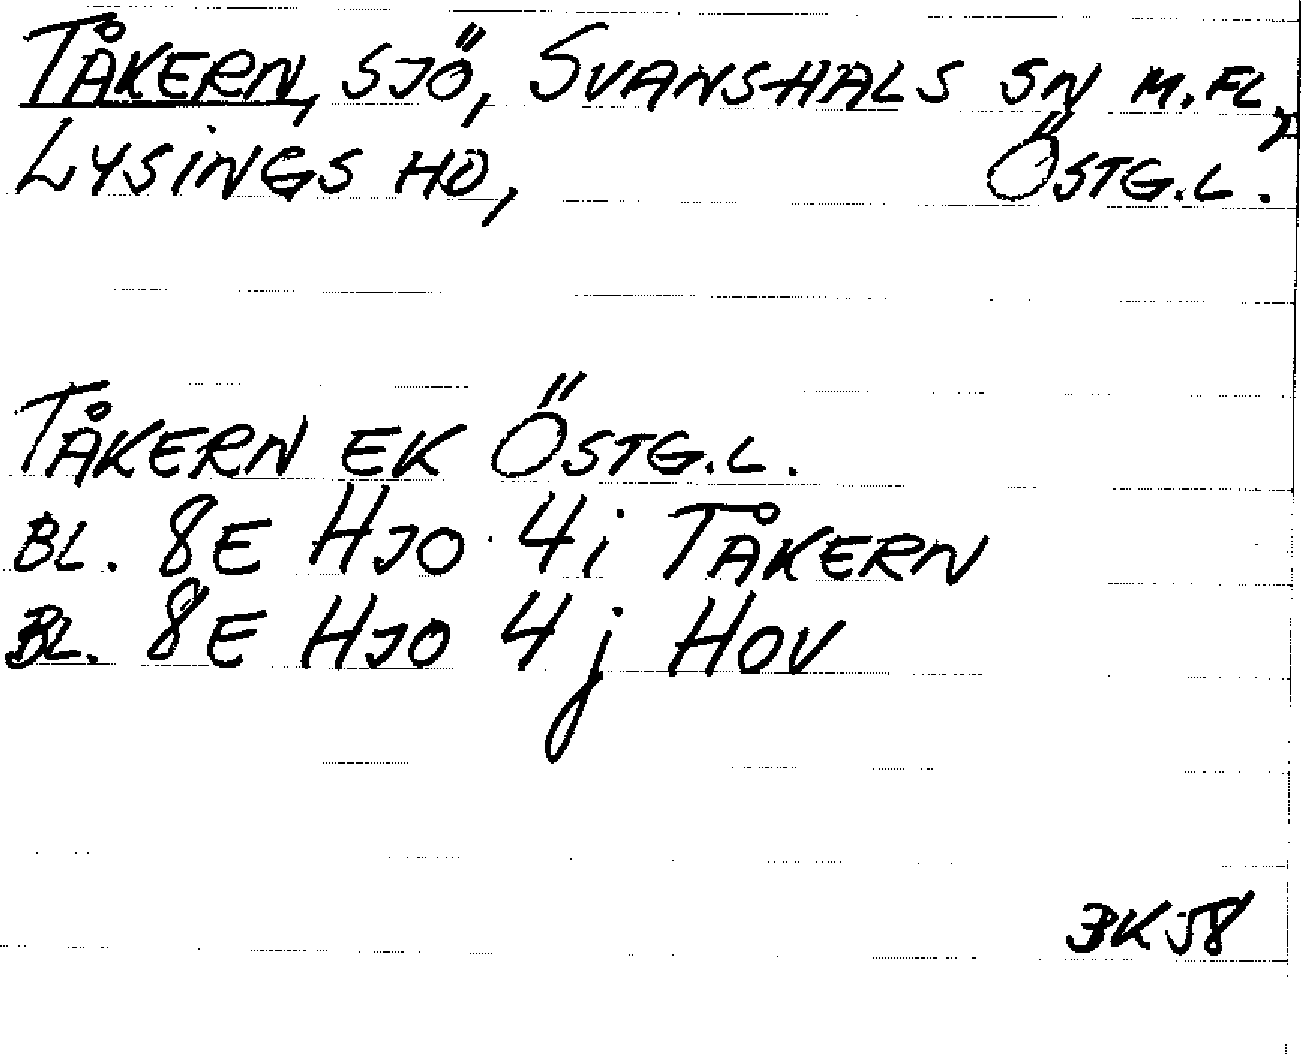 TÅKERN, SJÖ, SVANSHALS SN M.FL.,
LYSINGS HD, ÖSTG.L.
TÅKERN EK ÖSTG.L.
BL. 8E HJO 4i TÅKERN
BL. 8E HJO 4j HOV
3K58